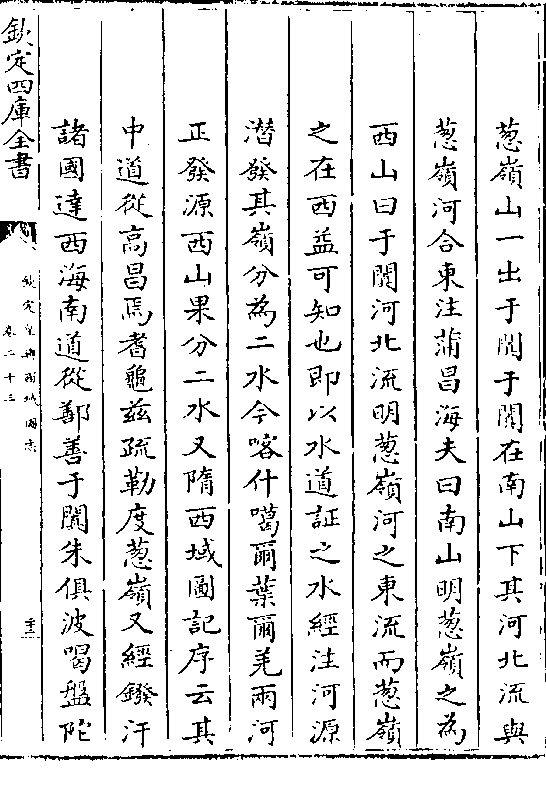 葱嶺山一出于闐于闐在南山下其河北流與
葱嶺河合東注蒲昌海夫曰南山明葱嶺之為
西山曰于闐河北流明葱嶺河之東流而葱嶺
之在西益可知也即以水道証之水經注河源
潜發其嶺分為二水今喀什噶爾葉爾羌兩河
正發源西山果分二水又隋西域圖記序云其
中道從高昌焉耆龜兹疏勒度葱嶺又經鏺汗
諸國達西海南道從鄯善于闐朱俱波喝盤陀
欽定四庫全書
欽定皇輿西域圖志
卷二十三